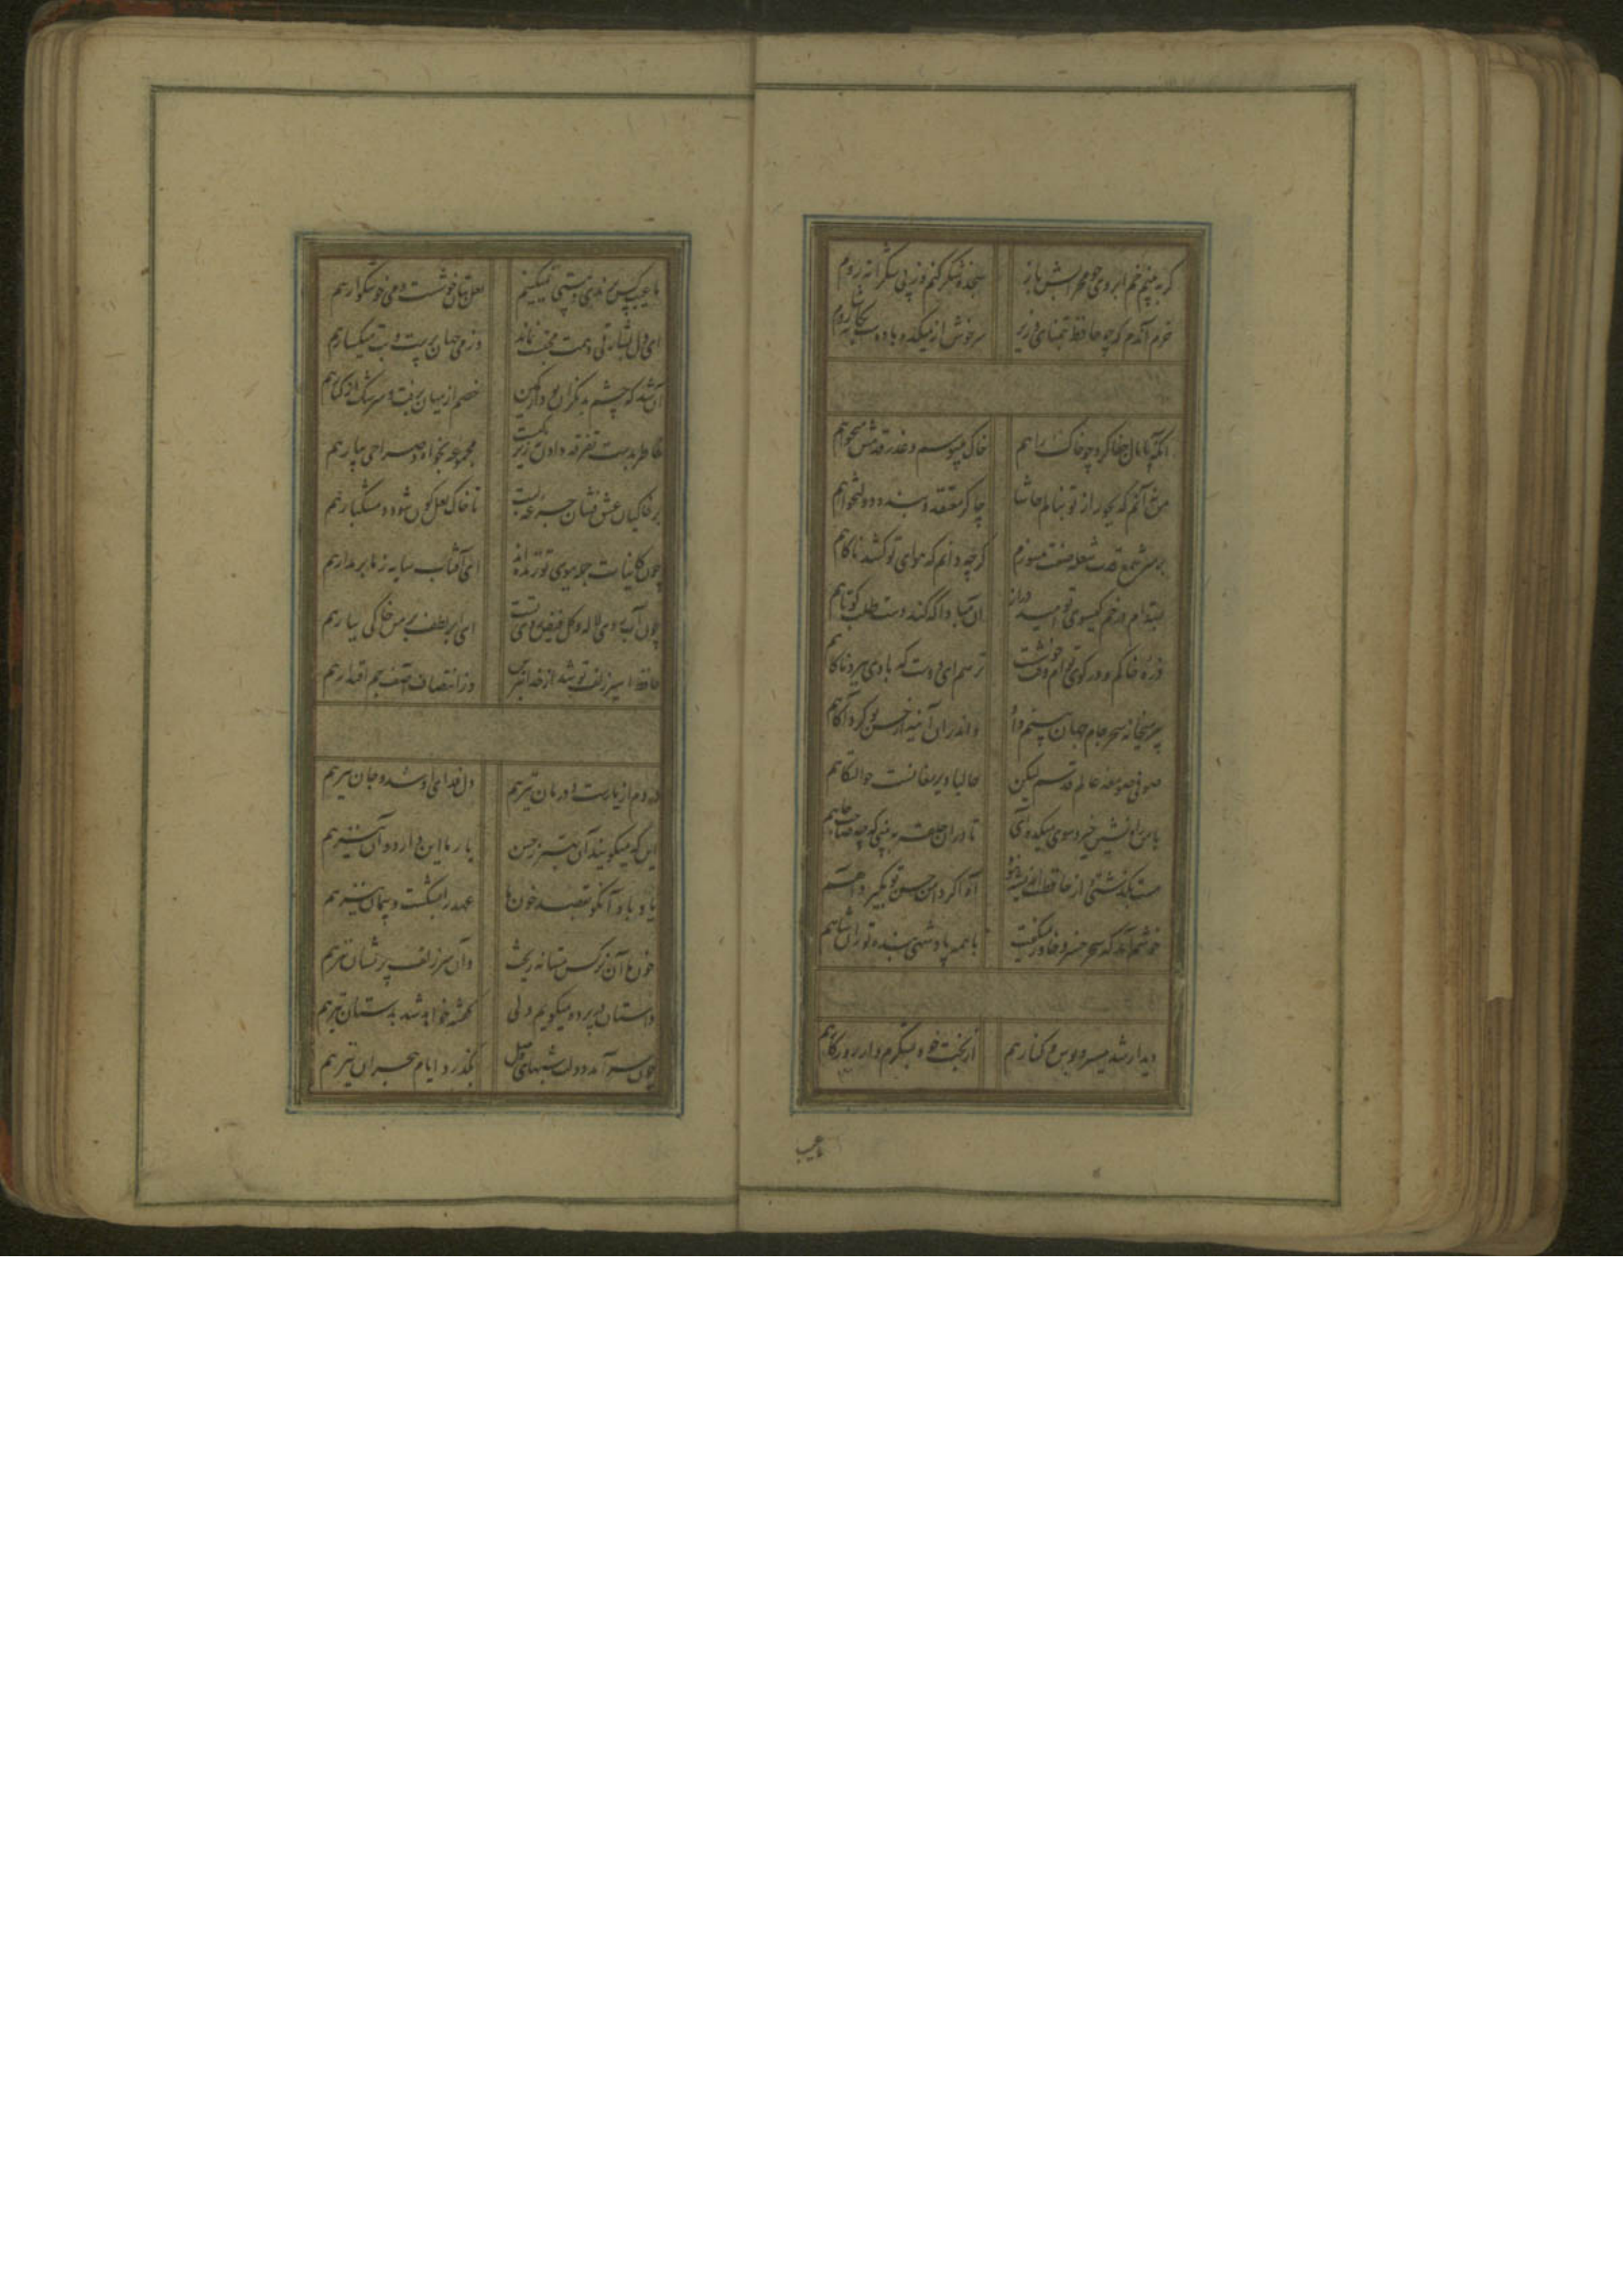 کر به بینم خم ابروی چو محرابش باز سجده شکر کنم وز پی شکرانه روم
خرم آندم که چو حافظ بتمنای وزیر سرخوش از میکده با دوست بکاشانه روم
آنکه پامال جفا کرد چو خاک راهم خاک میبوسم و عذر قدمش میخواهم
من نه آنم که بجور از تو بنالم حاشا چاکر معتقد و بنده دولتخواهم
بسته‌ام در خم کیسوی تو امید دراز آن مبادا که کند دست طلب کوتاهم
ذره خاکم و در کوی توام وقت خوشست ترسم ای دوست که بادی ببرد ناکاهم
پیر میخانه سحر جام جهان بینم داد واندران آینه از حسن تو کرد آکاهم
صوفی صومعه عالم قدسم لیکن حالیا دیر مغانست حوالتکاهم
با من راه نشین خیز و سوی میکده آی تا دران حلقه به بینی که چه صاحب جاهم
مست بکذشتی و از حافظت اندیشه نبود آه اکر دامن حسن تو بکیرد آهم
خوشم آمد که سحر خسرو خاور میکفت با همه پادشهی بنده تورانشاهم
دیدار شد میسر و بوس و کنار هم از بخت خود بشکرم و از روزکار هم
ما عیب کس برندی و مستی نمیکنیم لعل بتان خوشست و می خوشکوار هم
ای دل بشارتی دهمت محتسب نماند وز می جهان پرست و بت میکسار هم
آن شد که چشم بد نکران بود از کمین خصم از میان برفت و سرشک از کنار هم
خاطر بدست تفرقه دادن نه زیرکیست مجموعه بخواه و صراحی بیار هم
بر خاکیان عشق فشان جرعه لبت تا خاک لعل کون شود و مشکبار هم
چون کاینات جمله ببوی تو زنده‌اند ای آفتاب سایه ز ما بر مدار هم
چون آب روی لاله و کل فیض حسن تست ای ابر لطف بر من خاکی ببار هم
حافظ اسیر زلف تو شد از خدا بترس وز انتصاف آصف جم اقتدار هم
دردم از یارست و درمان نیز هم دل فدای او شد و جان نیز هم
این که میکویند آن بهتر ز حسن یار ما این دارد و آن نیز هم
یاد باد آنکو بقصد خون ما عهد را بشکست و پیمان نیز هم
خون ما آن نرکس مستانه ریخت وان سر زلف پریشان نیز هم
داستان در پرده میکویم ولی کفته خواهد شد بدستان نیز هم
چون سر آمد دولت شبهای وصل بکذرد ایام هجران نیز هم
ما عیب